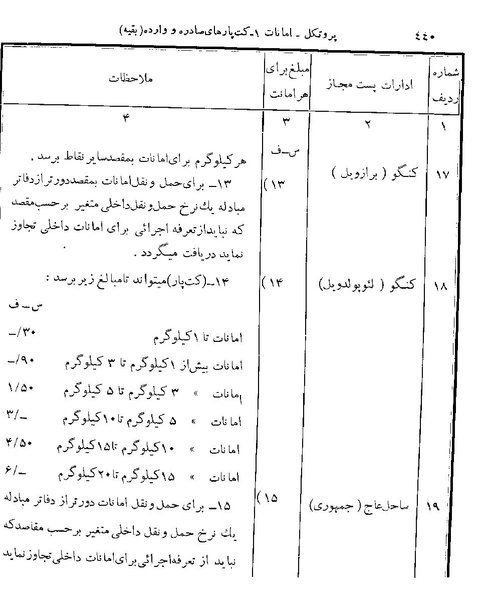 ۴۴۰ پروتکل ـ امانات ۱ـ کت‌پارهای صادره و وارده (بقیه)
شماره ردیف | ادارات پست مجاز | مبلغ برای هر امانت | ملاحظات
۱ | ۲ | ۳ | ۴
س ـ ف
۱۷ کنگو ( برازویل ) هر کیلوگرم برای امانات بمقصد سایر نقاط برسد .
۱۳) ۱۳ـ برای حمل و نقل امانات بمقصد دورتر از دفاتر
مبادله یك نرخ حمل و نقل داخلی متغیر برحسب مقصد
که نباید از تعرفه اجرائی برای امانات داخلی تجاوز
نماید دریافت میگردد .
۱۸ کنگو ( لئوپولدویل) ۱۴) ۱۴ـ (کت‌پار) میتواند تا مبالغ زیر برسد :
س ـ ف
امانات تا ۱ کیلوگرم ۳۰/ـ
امانات بیش از ۱ کیلوگرم تا ۳ کیلوگرم ۹۰/ـ
امانات » ۳ کیلوگرم تا ۵ کیلوگرم ۱/۵۰
امانات » ۵ کیلوگرم تا ۱۰ کیلوگرم ۳/ـ
امانات » ۱۰ کیلوگرم تا ۱۵ کیلوگرم ۴/۵۰
امانات » ۱۵ کیلوگرم تا ۲۰ کیلوگرم ۶/ـ
۱۹ ساحل عاج ( جمهوری) ۱۵) ۱۵ـ برای حمل و نقل امانات دورتر از دفاتر مبادله
یك نرخ حمل و نقل داخلی متغیر برحسب مقاصد که
نباید از تعرفه اجرائی برای امانات داخلی تجاوز نماید